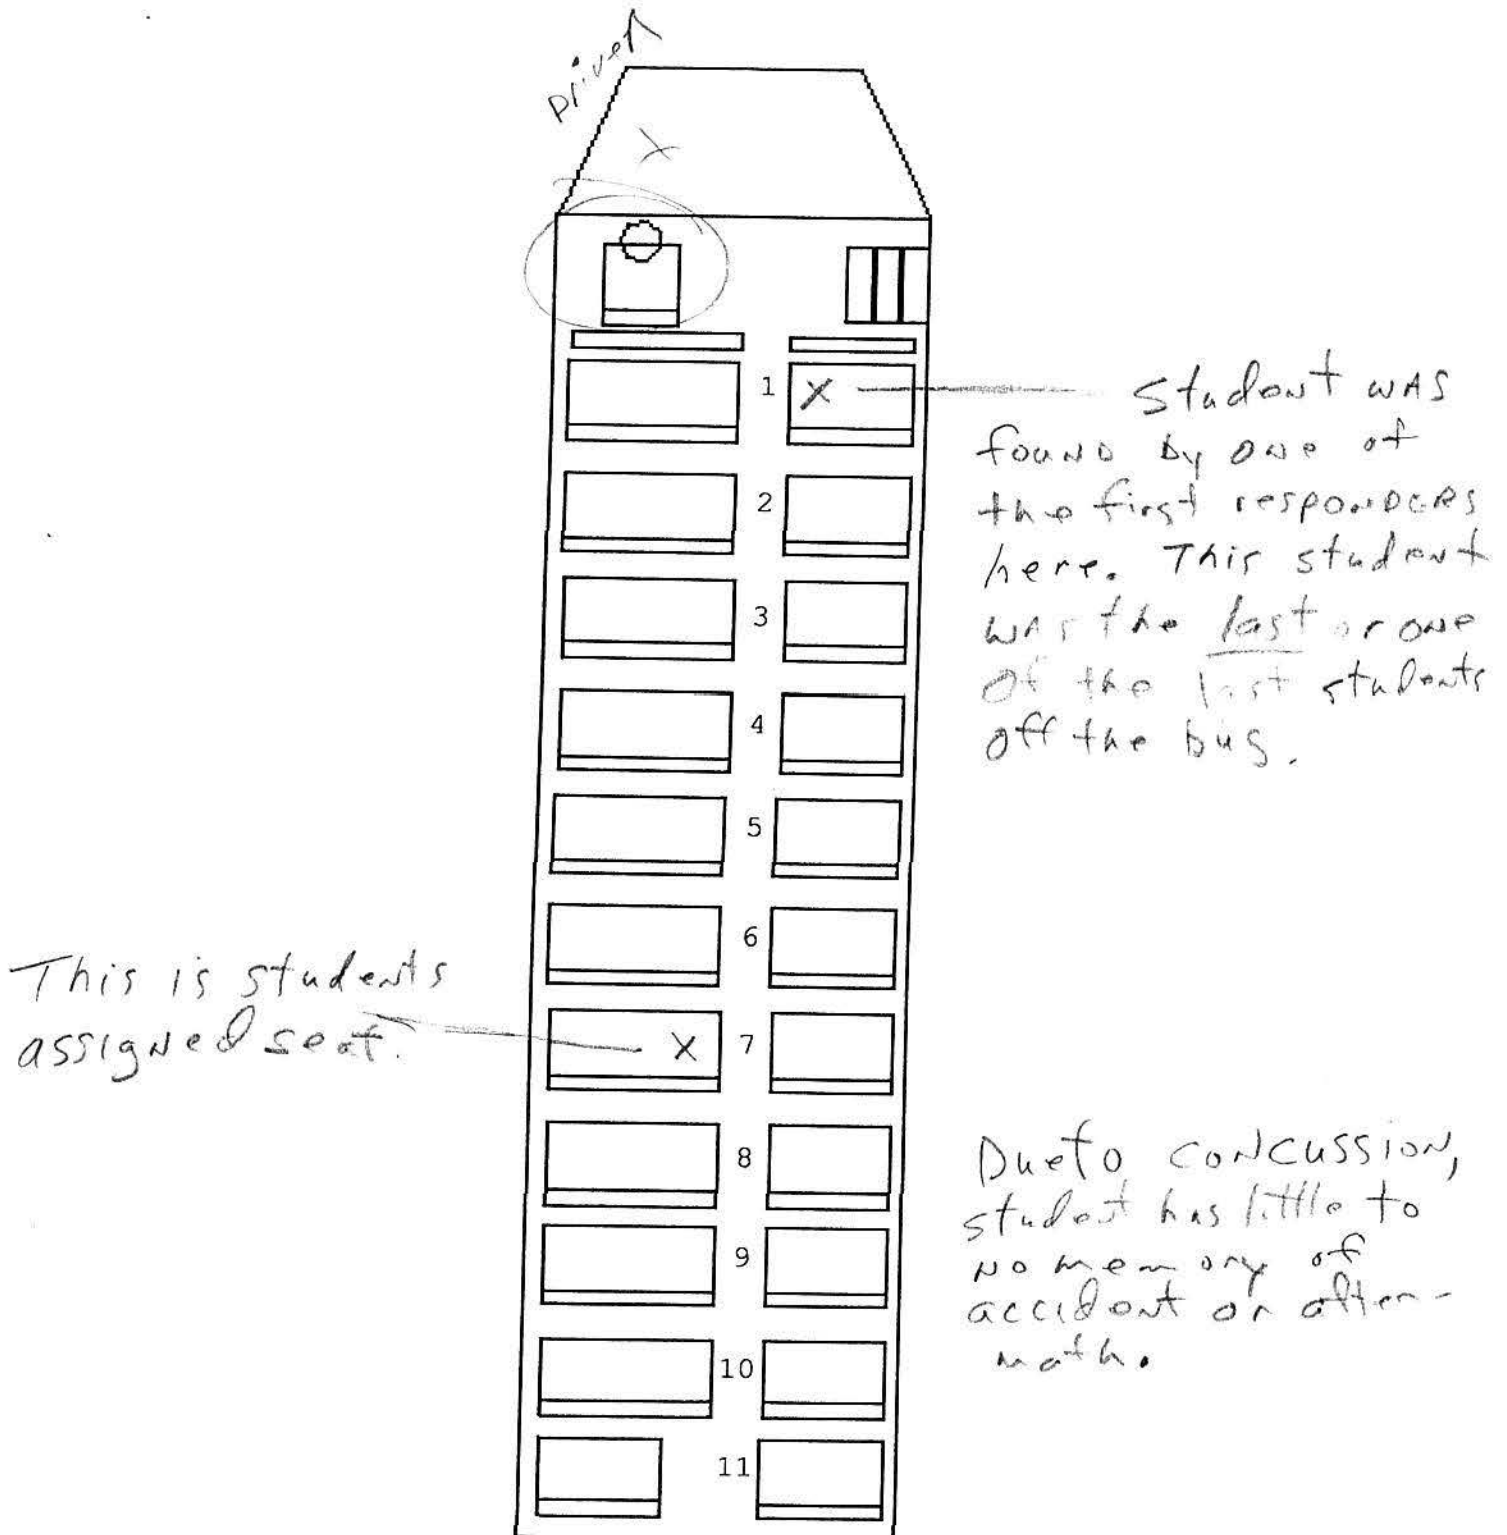 Driver
X
1
X
Student was
found by one of
the first responders
here. This student
was the last or one
of the last students
off the bus.
2
3
4
5
6
This is students
assigned seat.
X
7
8
Due to concussion,
student has little to
no memory of
accident or after-
math.
9
10
11